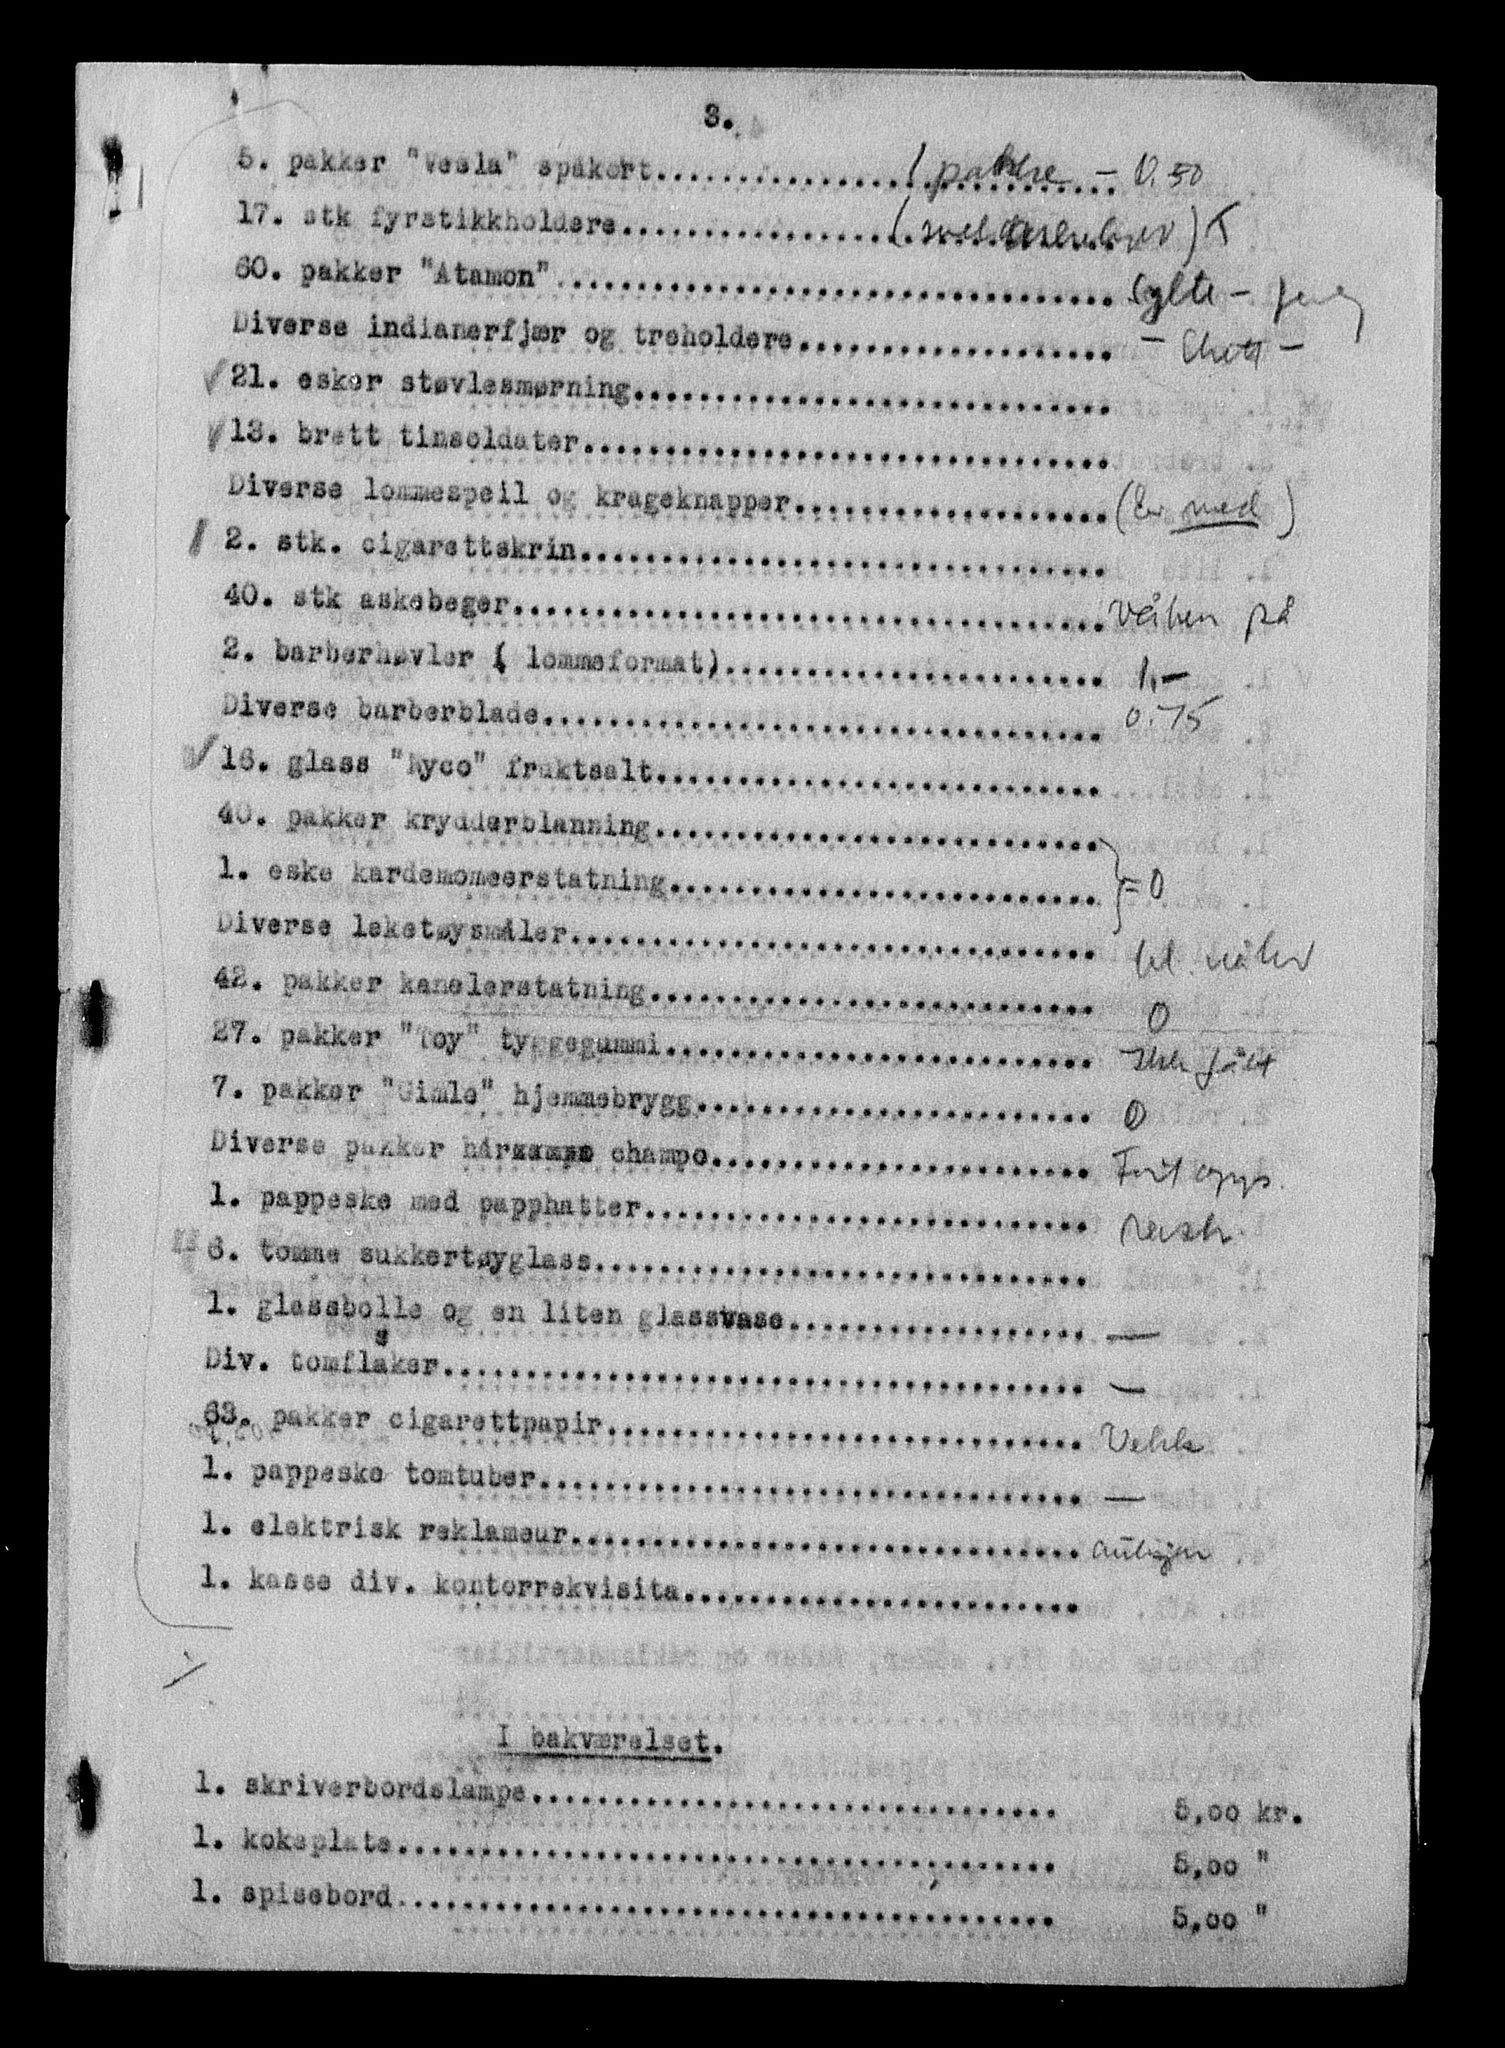 3.
5. pakker "Vesla" spåkort........................ 1 pakke - 0.50
17. stk fyrstikkholdere........................
60. pakker "Atamon"........................ Sylte -
Diverse indianerfjær og treholdere........................
21. esker støvlesmørning........................
13. brett tinsoldater........................
Diverse lommespeil og krageknapper........................ (Er med)
2. stk. cigarettskrin........................
40. stk askebeger........................ Våben på
2. barberhøvler ( lommeformat)........................ 1,-
Diverse barberblade........................ 0.75
16. glass "Nyco" fruktsalt........................
40. pakker krydderblanning........................
1. eske kardemomeerstatning........................ = 0
Diverse leketøysmåler........................
42. pakker kanelerstatning........................ 0
27. pakker "Toy" tyggegummi........................ Ikke fått
7. pakker "Gimle" hjemmebrygg........................ 0
Diverse pakker hår champo........................
1. pappeske med papphatter........................ Rask
6. tomme sukkertøyglass........................
1. glassbolle og en liten glassvase........................ —
Div. tomflasker........................ —
63. pakker cigarettpapir........................ Vekk
1. pappeske tomtuber........................ —
1. elektrisk reklameur........................
1. kasse div. kontorrekvisita........................
I bakværelset.
1. skriverbordslampe........................ 5,00 kr.
1. kokeplate........................ 5,00 "
1. spisebord........................ 5,00 "